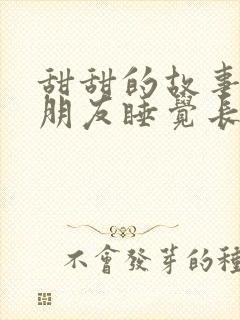 甜甜的故事
朋友睡覺長
不會發芽的種